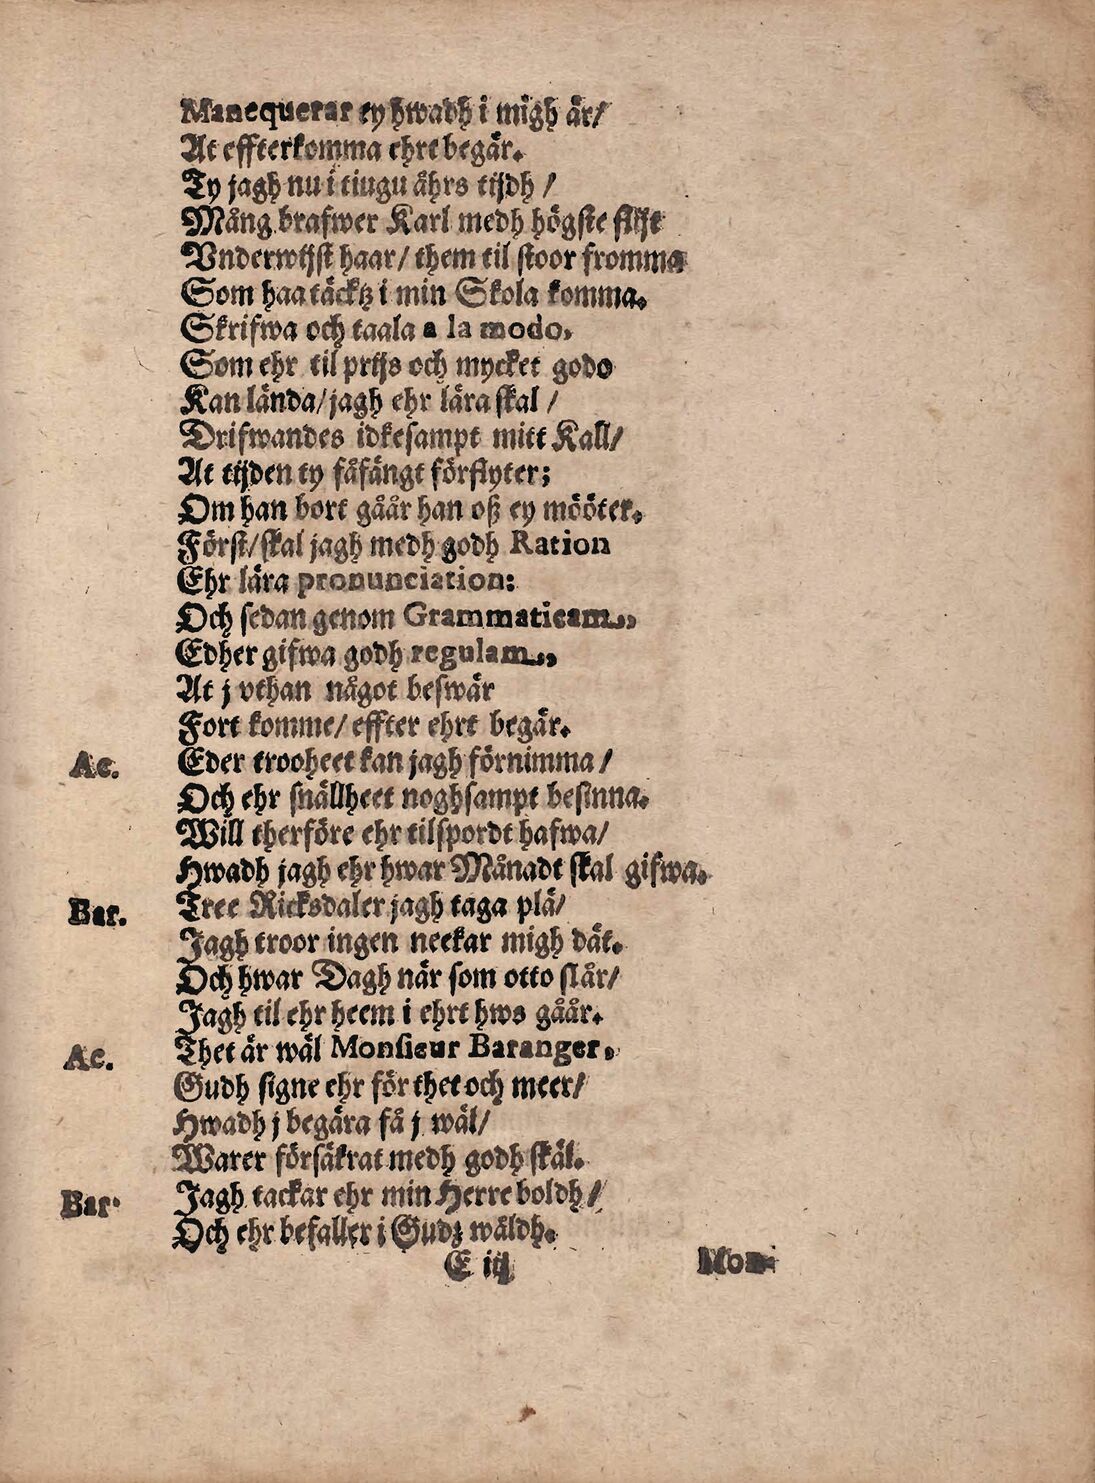 Manequerar ey hwadh i migh är/
At effterkomma ehrt begär.
Ty jagh nu i tiugu ährs tijdh /
Mång brafwer Karl medh högste flijt
Vnderwijst haar/ them til stoor fromma
Som haa täcktz i min Skola komma.
Skrifwa och taala a la modo,
Som ehr til prijs och mycket godo
Kan lända/ jagh ehr lära skal /
Drifwandes idkesampt mitt Kall/
At tijden ey fåfängt förflyter;
Om han bort gåår han oß ey mööter.
Först/ skal jagh medh godh Ration
Ehr lära pronunciation:
Och sedan genom Grammaticam,
Edher gifwa godh regulam,
At j vthan något beswär
Fort komme/ effter ehrt begär.
Ac. Eder trooheet kan jagh förnimma /
Och ehr snällheet noghsampt besinna.
Will therföre ehr tilspordt hafwa/
Hwadh jagh ehr hwar Månadt skal gifwa.
Bar. Tree Ricksdaler jagh taga plä/
Jagh troor ingen neekar migh dät.
Och hwar Dagh när som otto slår/
Jagh til ehr heem i ehrt hws gåår.
Ac. Thet är wäl Monsieur Baranger,
Gudh signe ehr för thet och meer/
Hwadh j begära få j wäl/
Warer försäkrat medh godh skäl.
Bar. Jagh tackar ehr min Herre boldh/
Och ehr befaller i Gudz wäldh.
E iij Mon-